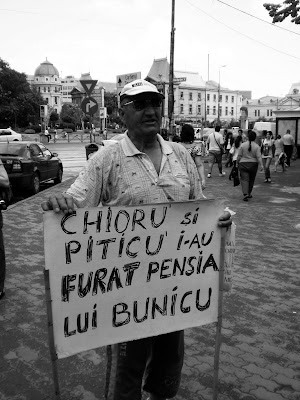 CHIORU ȘI
PITICU' I-AU
FURAT PENSIA
LUI BUNICU